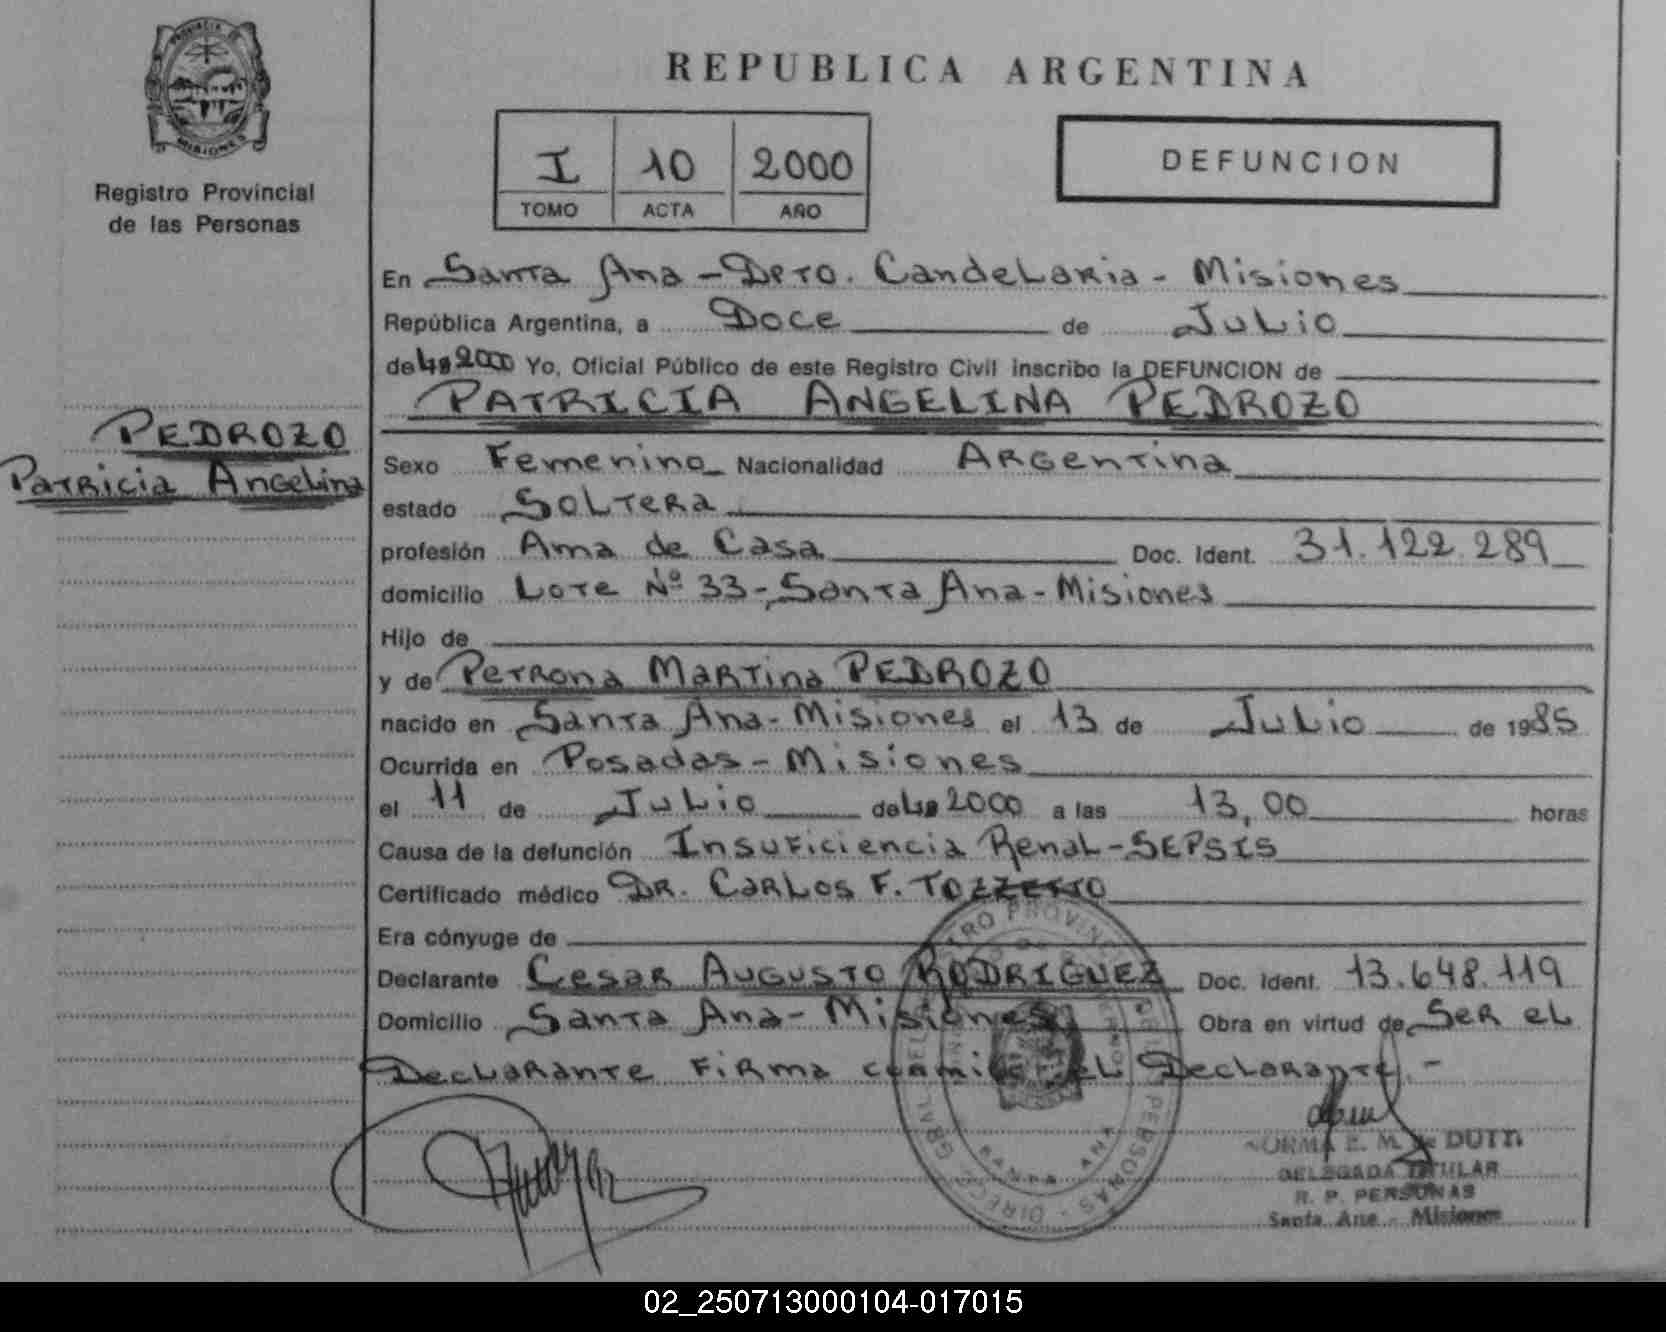 PROVINCIA DE
MISIONES
Registro Provincial
de las Personas
PEDROZO
Patricia Angelina
REPUBLICA ARGENTINA
I 10 2000
TOMO ACTA AÑO
DEFUNCION
En Santa Ana - Dpto. Candelaria - Misiones
República Argentina, a Doce de Julio
de 2000 Yo, Oficial Público de este Registro Civil inscribo la DEFUNCION de
PATRICIA ANGELINA PEDROZO
Sexo Femenino Nacionalidad Argentina
estado Soltera
profesión Ama de Casa Doc. Ident. 31.122.289
domicilio Lote Nº 33-Santa Ana-Misiones
Hijo de
y de Petrona Martina PEDROZO
nacido en Santa Ana-Misiones el 13 de Julio de 1985
Ocurrida en Posadas-Misiones
el 11 de Julio de 2000 a las 13,00 horas
Causa de la defunción Insuficiencia Renal-SEPSIS
Certificado médico DR. Carlos F. TOZZETTO
Era cónyuge de
Declarante Cesar Augusto RODRIGUEZ Doc. Ident. 13.648.119
Domicilio Santa Ana-Misiones Obra en virtud de Ser el
Declarante Firma conmigo el Declarante.-
SANTA ANA
NORMA E. M. de DUTTI
DELEGADA TITULAR
R. P. PERSONAS
Santa Ana - Misiones
02_250713000104-017015